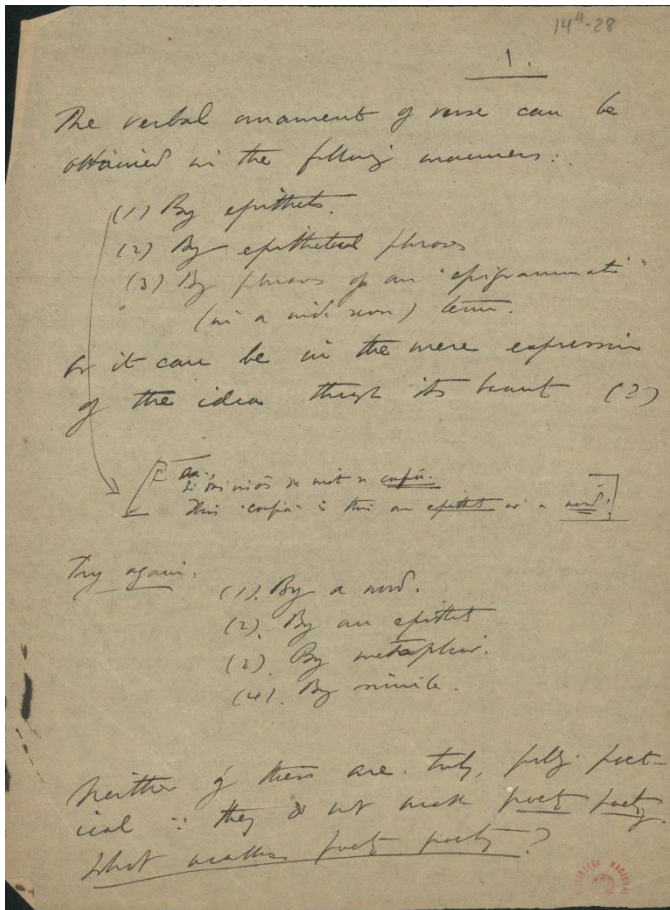 14⁴-28
1.
The verbal ornament of verse can be
obtained in the following manners:
(1) By epithets.
(2) By epithetical phrases
(3) By phrases of an "epigrammatic"
(in a wide sense) term.
Or it can be in the mere expression
of the idea through its beauty (?)
This is this an epithet or a word?
Try again.
(1). By a word.
(2). By an epithet
(3). By metaphor.
(4). By simile.
Neither of these are truly, fully poet-
ical ∵ they do not make poetry poetry.
What makes poetry poetry?